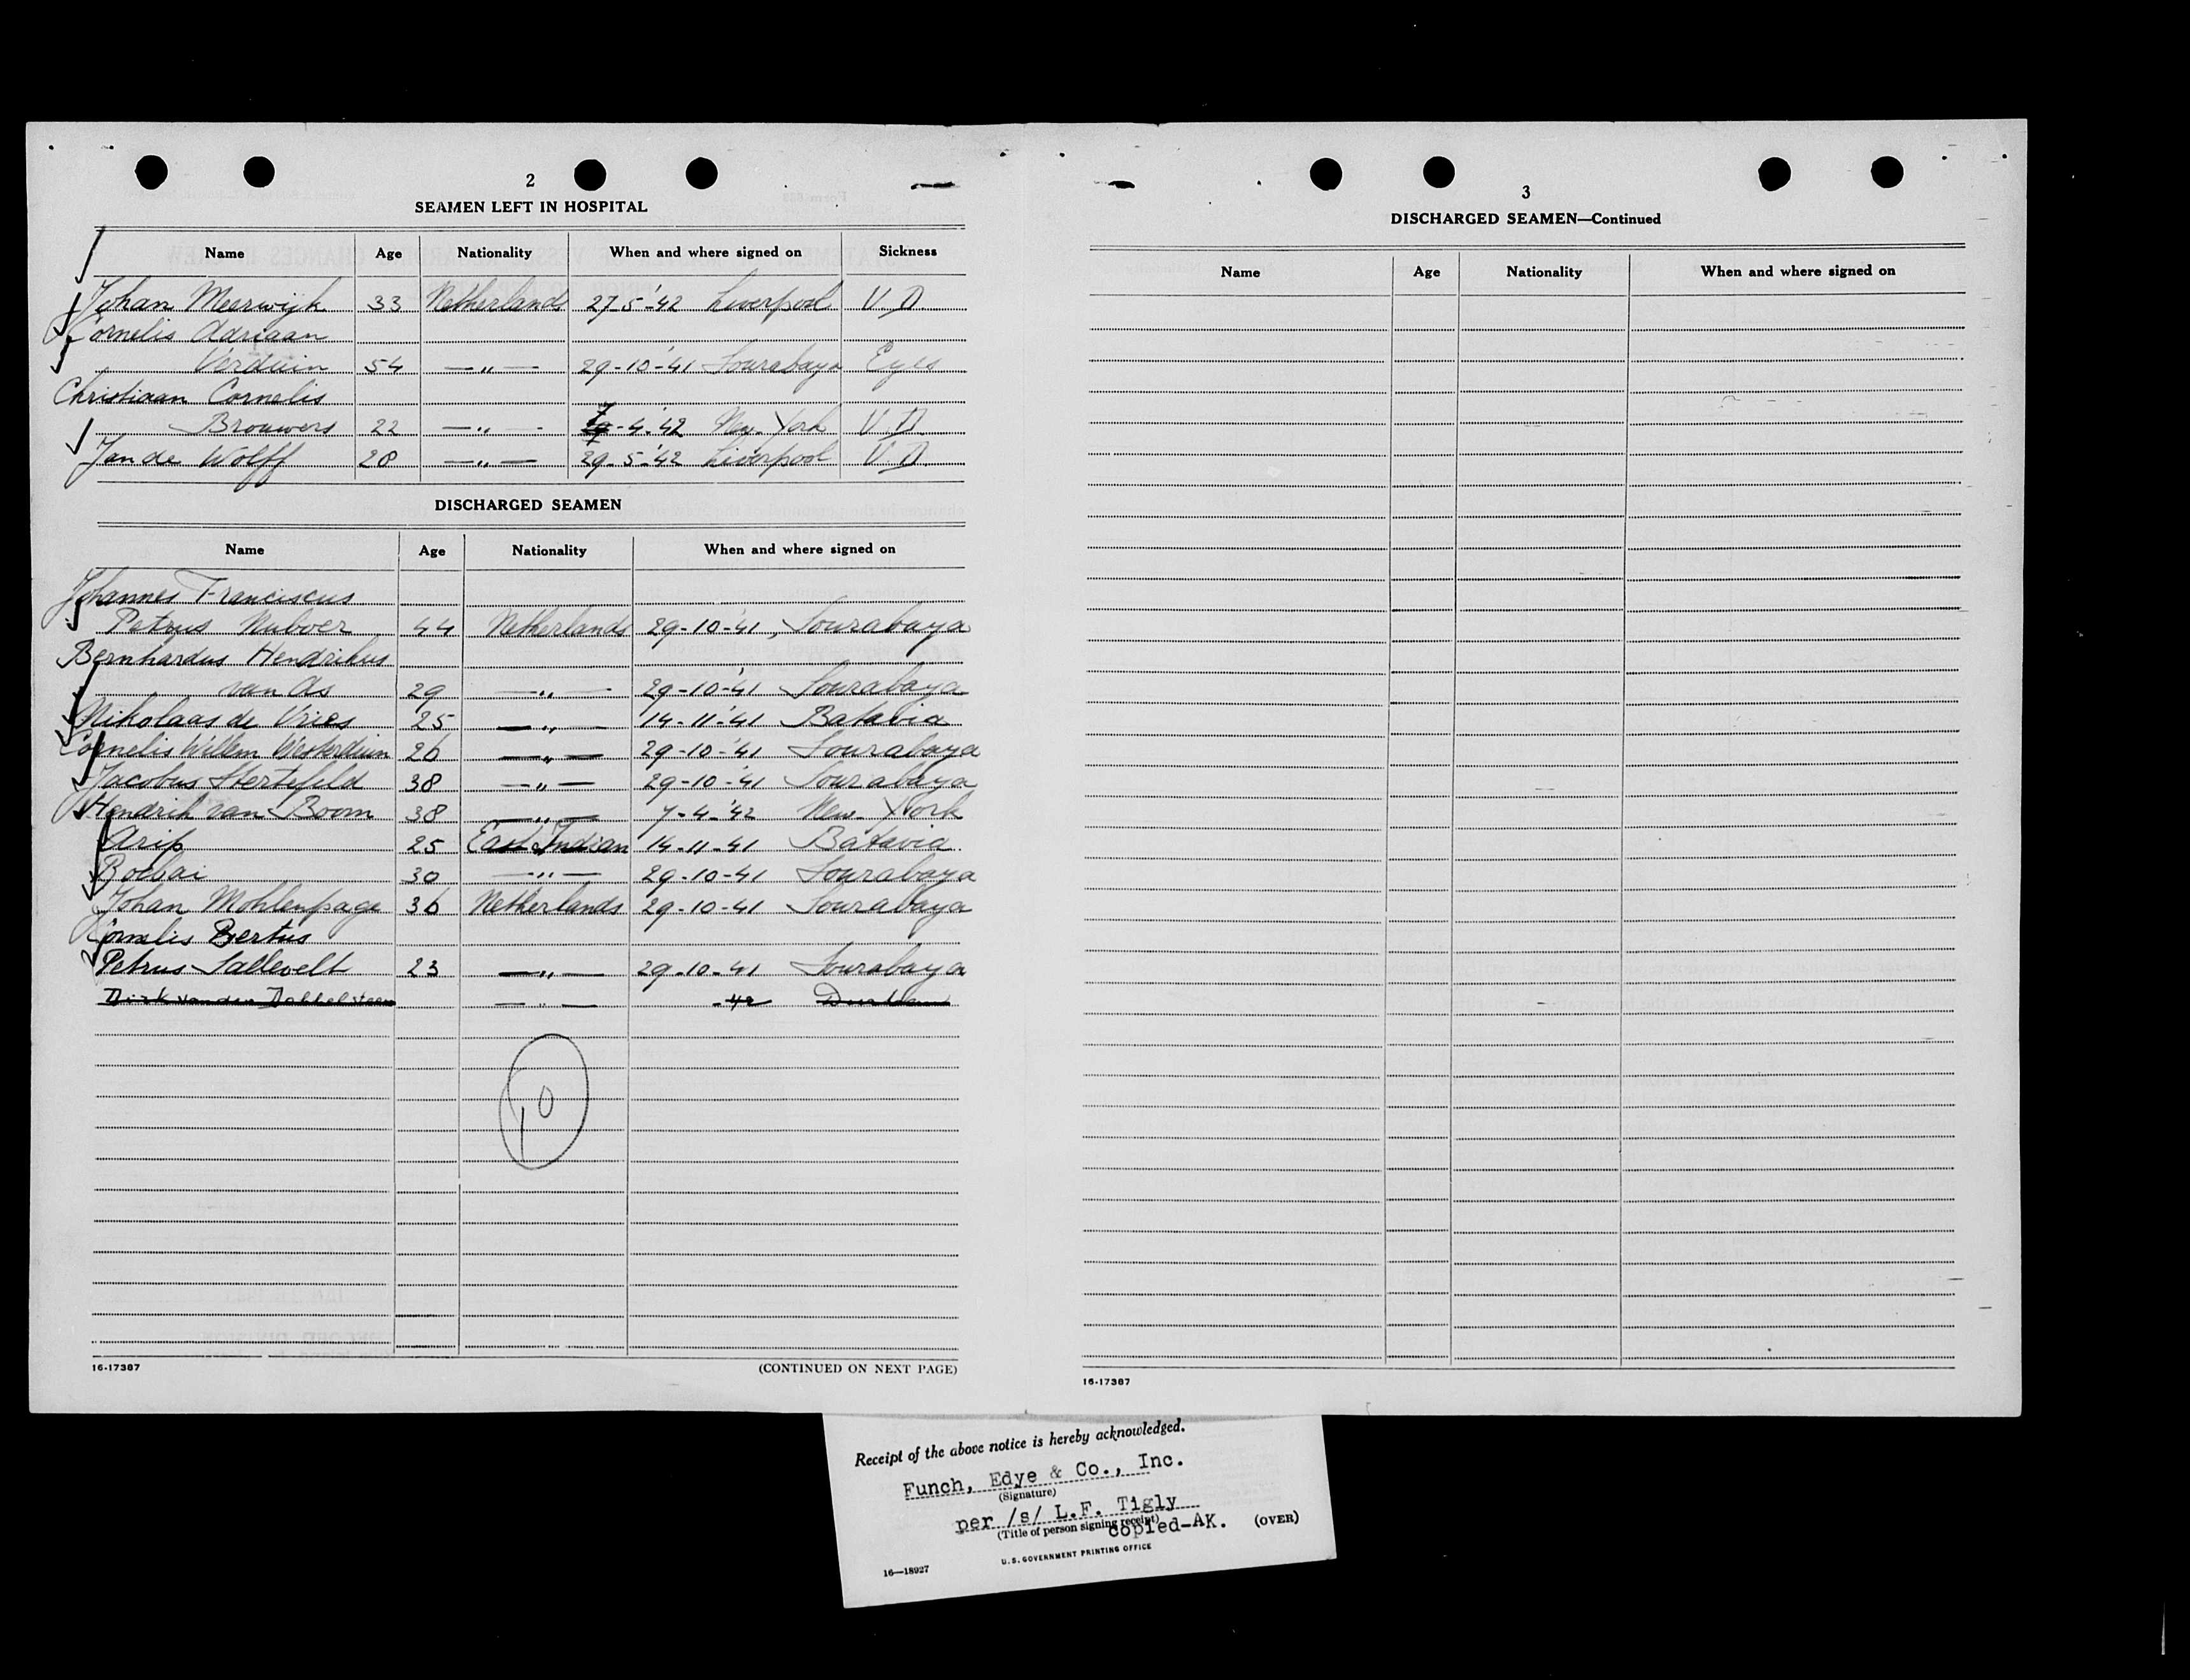 2
SEAMEN LEFT IN HOSPITAL
Name Age Nationality When and where signed on Sickness
Johan Meerwijk 33 Netherlands 27-5-'42 Liverpool V.D.
Cornelis Adriaan
Verduin 54 —"— 29-10-'41 Sourabaya Eyes
Christiaan Cornelis
Brouwers 22 —"— 7-4-'42 New-York V.D.
Jan de Wolff 28 —"— 29-5-'42 Liverpool V.D.
DISCHARGED SEAMEN
Name Age Nationality When and where signed on
Johannes Franciscus
Petrus Nuboer 44 Netherlands 29-10-'41, Sourabaya
Bernhardus Hendrikus
van As 29 —"— 29-10-'41 Sourabaya
Nikolaas de Vries 25 —"— 14-11-'41 Batavia
Cornelis Willem Westerduin 26 —"— 29-10-'41 Sourabaya
Jacobus Hertefeld 38 —"— 29-10-'41 Sourabaya
Hendrik van Boom 38 —"— 7-4-'42 New-York
Arip 25 East Indian 14-11-41 Batavia
30 —"— 29-10-41 Sourabaya
Johan Mohlenpage 36 Netherlands 29-10-41 Sourabaya
Cornelis Bertus
Petrus Sallevelt 23 —"— 29-10-41 Sourabaya
Dirk van den Dobbelsteen —"— -42
10
16-17387
(CONTINUED ON NEXT PAGE)
3
DISCHARGED SEAMEN—Continued
Name Age Nationality When and where signed on
16-17387
Receipt of the above notice is hereby acknowledged.
Funch, Edye & Co., Inc.
(Signature)
per /s/ L.F. Tigly
(Title of person signing receipt)
copied-AK. (OVER)
16—18927
U. S. GOVERNMENT PRINTING OFFICE